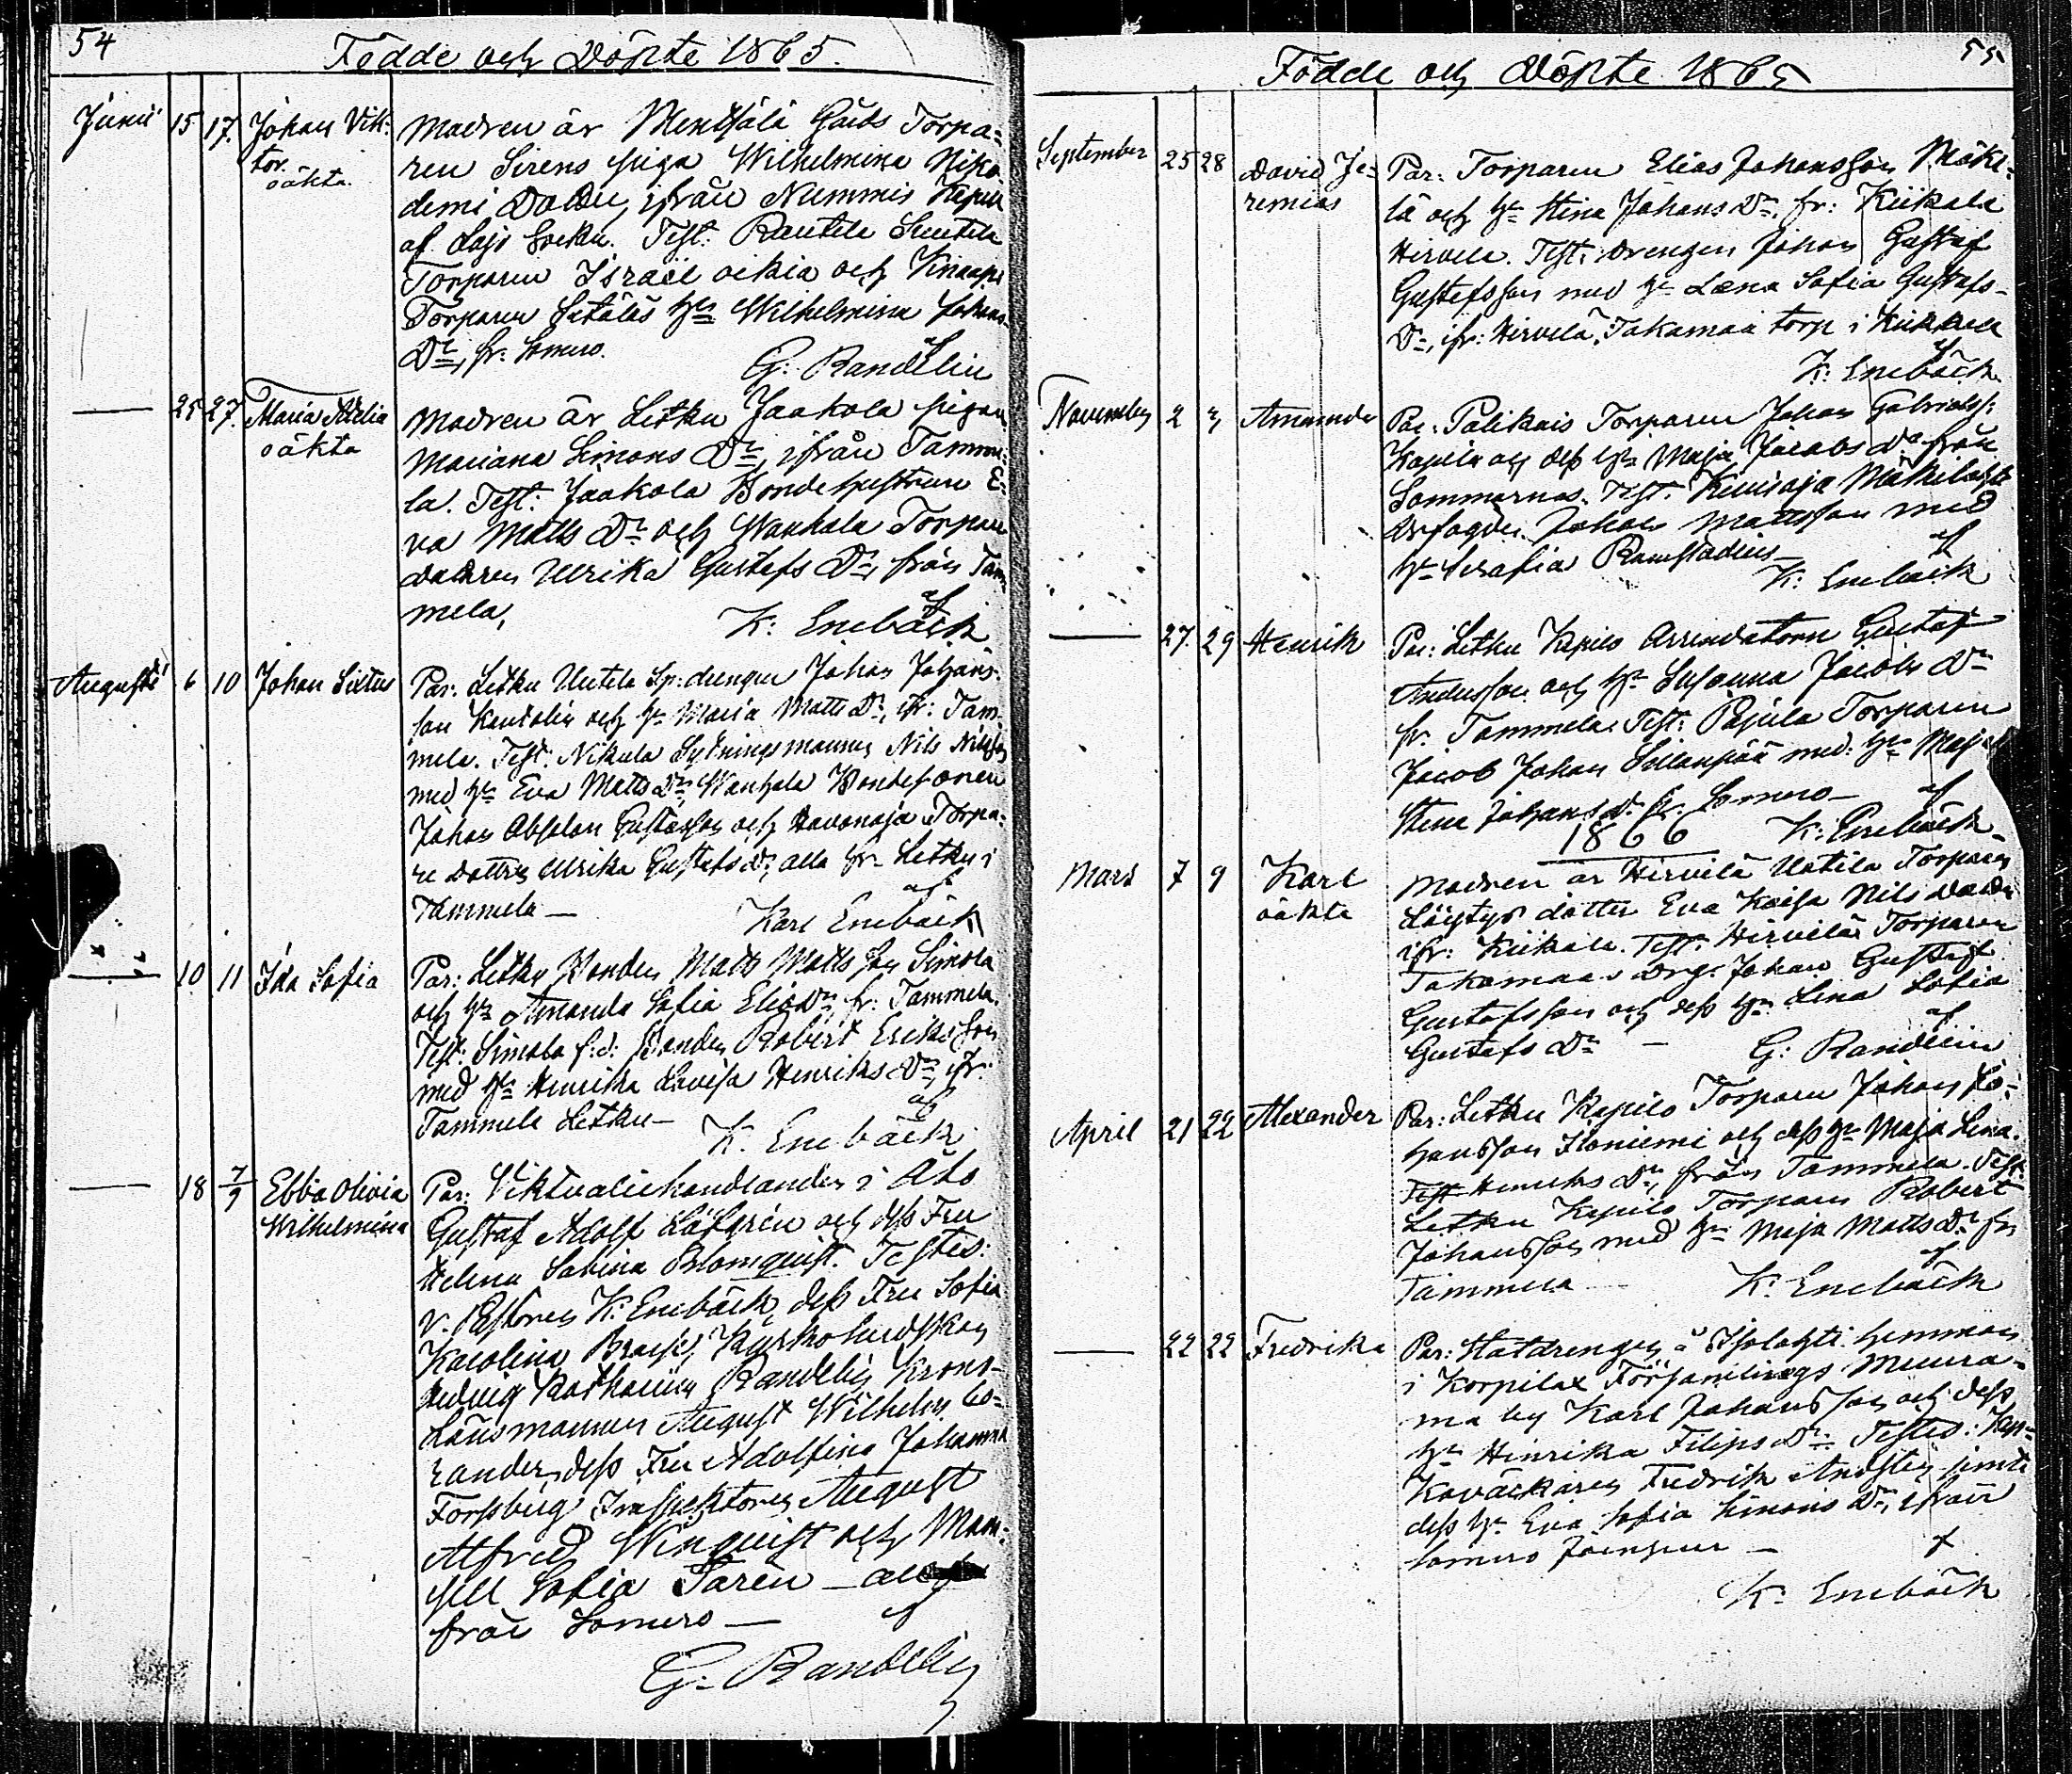 54
Födde och Döpte 1865.
Junii 15 17. Johan Vik-
tor.
oäkta.
Modren är Menthälä Gårds Torpa-
ren Sirens piga Wilhelmina Niko-
demi Dotter, ifrån Nummis
af Lojo Socken. Test: Rautela Suutela
Torparen Israël och
Torparen hu Wilhelmina Johans
Dr, fr. Somero.
af
G: Randelin
— 25 27. Maria Adelia
oäkta
Modren är Letku Jaakola pigan
Mariana Simons Dr, ifrån Tamme-
la. Test: Jaakola Bondehustrun E-
va Matts Dr och Wanhala Torpare
dottren Ulrika Gustafs Dr, från Tam-
mela,
af
K: Enebäck
Augusti 6 10 Johan Sixtus
Par: Letku Uutela Sp: drengen Johan Johans-
son och hu Maria Matts Dr, ifr: Tam-
mela. Test: Nikula Sytningsmannen Nils Nilsson
med hu Eva Matts Dr, Wanhala Bondesonen
Johan Absolon Gustafsson och Havonoja Torpa-
re dottren Ulrika Gustafs Dr, alla fr. Letku i
Tammela —
af
Karl Enebäck
— 10 11 Ida Sofia
Par: Letku Bonden Matts Matts Son Simola
och hu Amanda Sofia Elias Dr, fr: Tammela.
Test: Simola f.d. Bonden Robert Eriksson
med hu Henrika Lovisa Henriks Dr, ifr:
Tammela Letku —
af
K. Enebäck
— 18 7/9 Ebba Olivia
Wilhelmina
Par: Viktualiehandlanden i Åbo
Gustaf Adolf Löfgrén och dess Fru
Helena Sabina Blomquist. Testes:
V. Pastoren K. Enebäck, dess Fru Sofia
Karolina Kyrkoherdskan
Hedvig Katharina Randelin, Krono-
Länsmannen August Wilhelm Co-
rander, dess Fru Adolfina Johanna
Forssberg Inspektoren August
Alfred Winquist och Mam-
sell Sofia Tarén — alla
från Somero —
af
G. Randelin
55
Födde och Döpte 1865
September 25 28 David Je-
remias
Par: Torparen Elias Johansson Mäke-
lä och hu Stina Johans Dr. fr: Kiikala
Hirvelä. Test: drengen Johan Gustaf
Gustafsson med hu Lena Sofia Gustafs-
Dr, ifr: Hirvelä, Takamaa torp i Kiikala
af
K: Enebäck.
November 2 3 Amanda
Par: Palikais Torparen Johan Gabrielss:
och dess hu Maja Jacobs Dr från
Sommarnäs. Test:
Johan Mattsson med
hu Serafia Ramstadius —
af
K: Enebäck
— 27. 29 Henrik
Par: Letku Kapilo Arrendatorn Gustaf
Andersson och hu Susanna Jacobs Dr
fr. Tammela. Test: Pajula Torparen
Jacob Johan Sillanpää med hu Maja
Stina Johans Dr. fr. Somero —
af
K: Enebäck
1866
Mars 7 9 Karl
oäkta
Modren är Hirvelä Uotila Torparen
dotter Eva Kaisa Nils Dotter
ifr: Kiikala. Test: Hirvelä Torparen
Takamaa Drg: Johan Gustaf
Gustafsson och dess hu Lena Sofia
Gustafs Dr —
af
G: Randelin
April 21 22 Alexander
Par: Letku Kapilo Torparen Johan Jo-
hansson Koniemi och dess hu Maja Lena
Test Henriks Dr, från Tammela. Test:
Letku Kapilo Torparen Robert
Johansson med hu Maja Matts Dr fr.
Tammela
af
K: Enebäck
— 22 22 Fredrika
Par: Statdrengen å hemman
i Korpilax Församlings Muura-
me by Karl Johansson och dess
hu Henrika Filips Dr. Testes:
Fredrik jemte
dess hu Eva Sofia Simons Dr, ifrån
Somero
af
K: Enebäck